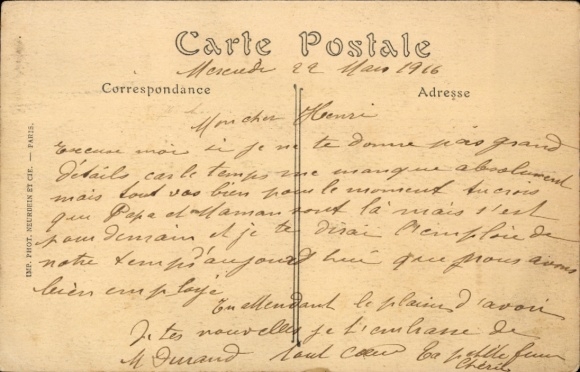 Carte Postale
Mercredi 22 Mars 1916
Correspondance
Adresse
Mon cher Henri
Excuse moi si je ne te donne pas grand
détails car le temps me manque absolument
mais tout vas bien pour le moment tu crois
que Papa et Maman sont là mais s'est
pour demain et je te dirai l'emploie de
notre temps aujourd hui que nous avons
bien employé
En attendant le plaisir d'avoir
de tes nouvelles je t'embrasse de
M Durand tout cœur Ta petite
Chérie
IMP. PHOT. NEURDEIN ET CIE. — PARIS.